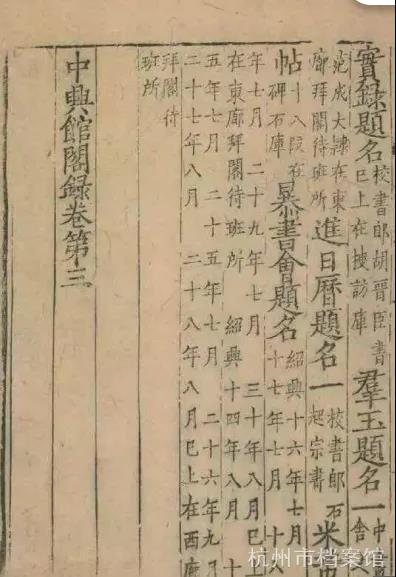 實錄題名 校書郎胡晉臣書
已上在搜訪庫 羣玉題名一
范成大隸在東
廊拜閣待班所 進日曆題名一 校書郎石
起宗書 米
帖 十八段在
碑石庫 暴書會題名 紹興十六年七月
十七年七月 十八
年七月 二十九年七月 三十年八月已上
在東廊拜閣待班所 紹興十四年八月 十
五年七月 二十五年七月 二十六年九月
二十七年八月 二十八年八月已上在西
拜閣待
班所
中興館閣錄卷第三
杭州市档案馆